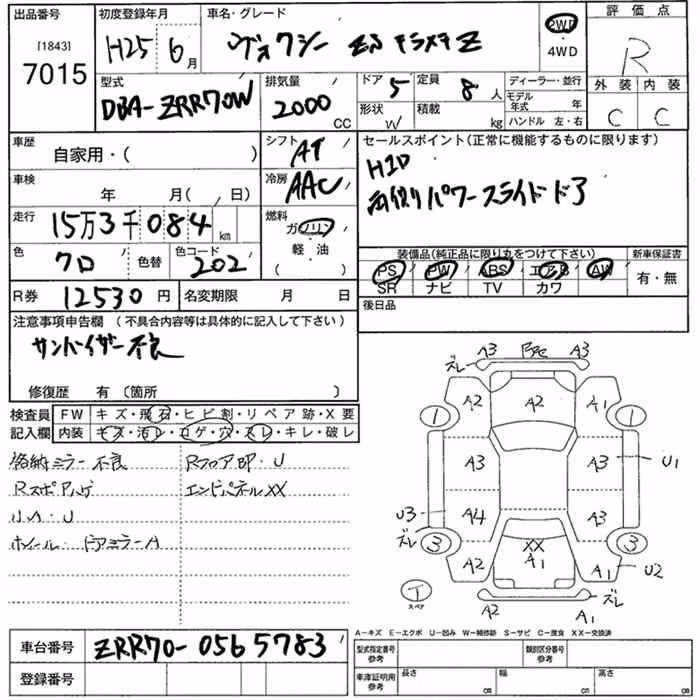 出品番号
[1843]
7015
初度登録年月
H25 6月
車名・グレード
ヴォクシー ZS キラメキZ
2WD
・
4WD
評価点
R
外装 内装
C C
型式
DBA-ZRR70W
排気量
2000
CC
ドア
5
定員
8人
形状
W
積載
kg
ディーラー・並行
モデル年式 年
ハンドル 左・右
車歴
自家用・( )
シフト
AT
車検
年 月( 日)
冷房
AAC
走行
15万3千084km
燃料
ガソリン
・
軽・油
( )
色
クロ
色替
色コード
202
R券
12530円
名変期限 月 日
セールスポイント(正常に機能するものに限ります)
HID
両側パワースライドドア
装備品(純正品に限り丸をつけて下さい)
PS PW ABS エアB AW
SR ナビ TV カワ
新車保証書
有・無
後日品
注意事項申告欄 (不具合内容等は具体的に記入して下さい)
サンバイザー不良
修復歴 有〔箇所 〕
検査員 FW キズ・飛石・ヒビ割・リペア跡・X要
記入欄 内装 キズ・汚レ・コゲ・穴・スレ・キレ・破レ
格納ミラー不良
Rフロア凹・U
Rスポハゲ
エンドパネルXX
小A・U
ホイール・ドアミラーA
ズレ A3 A3
A2 A2 A1
1 1
A3 A3 U1
U3 A4 A3
ズレ
3 3
A2 XX A1 A1 U2
ズレ
T
スペア
A2 A1
A-キズ E-エクボ U-凹み W-補修跡 S-サビ C-腐食 XX-交換済
車台番号
ZRR70-0565783
登録番号
型式指定番号
参考
類別区分番号
参考
車庫証明用
参考
長さ cm
幅 cm
高さ cm